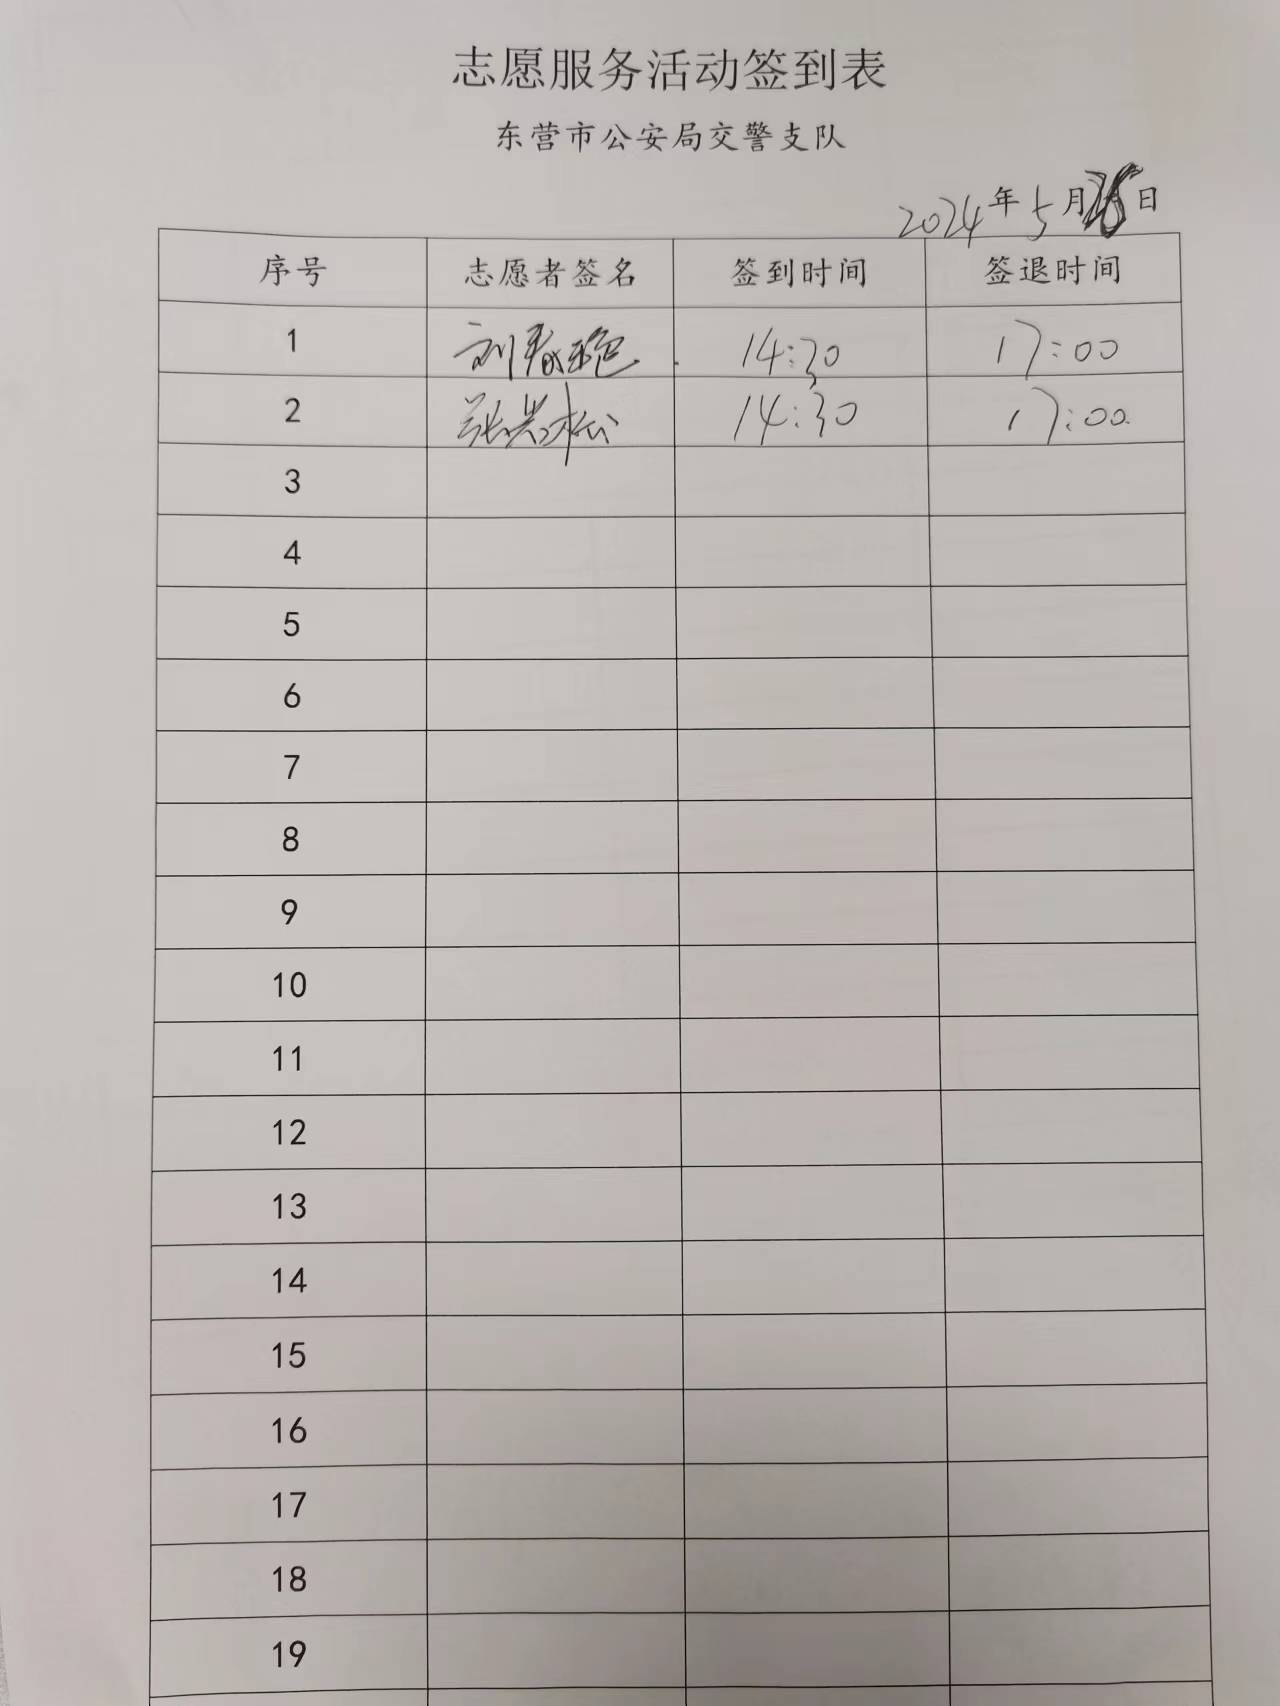 志愿服务活动签到表
东营市公安局交警支队
2024年5月 日
序号 志愿者签名 签到时间 签退时间
1 刘春艳 14:30 17:00
2 张洪松 14:30 17:00
3
4
5
6
7
8
9
10
11
12
13
14
15
16
17
18
19